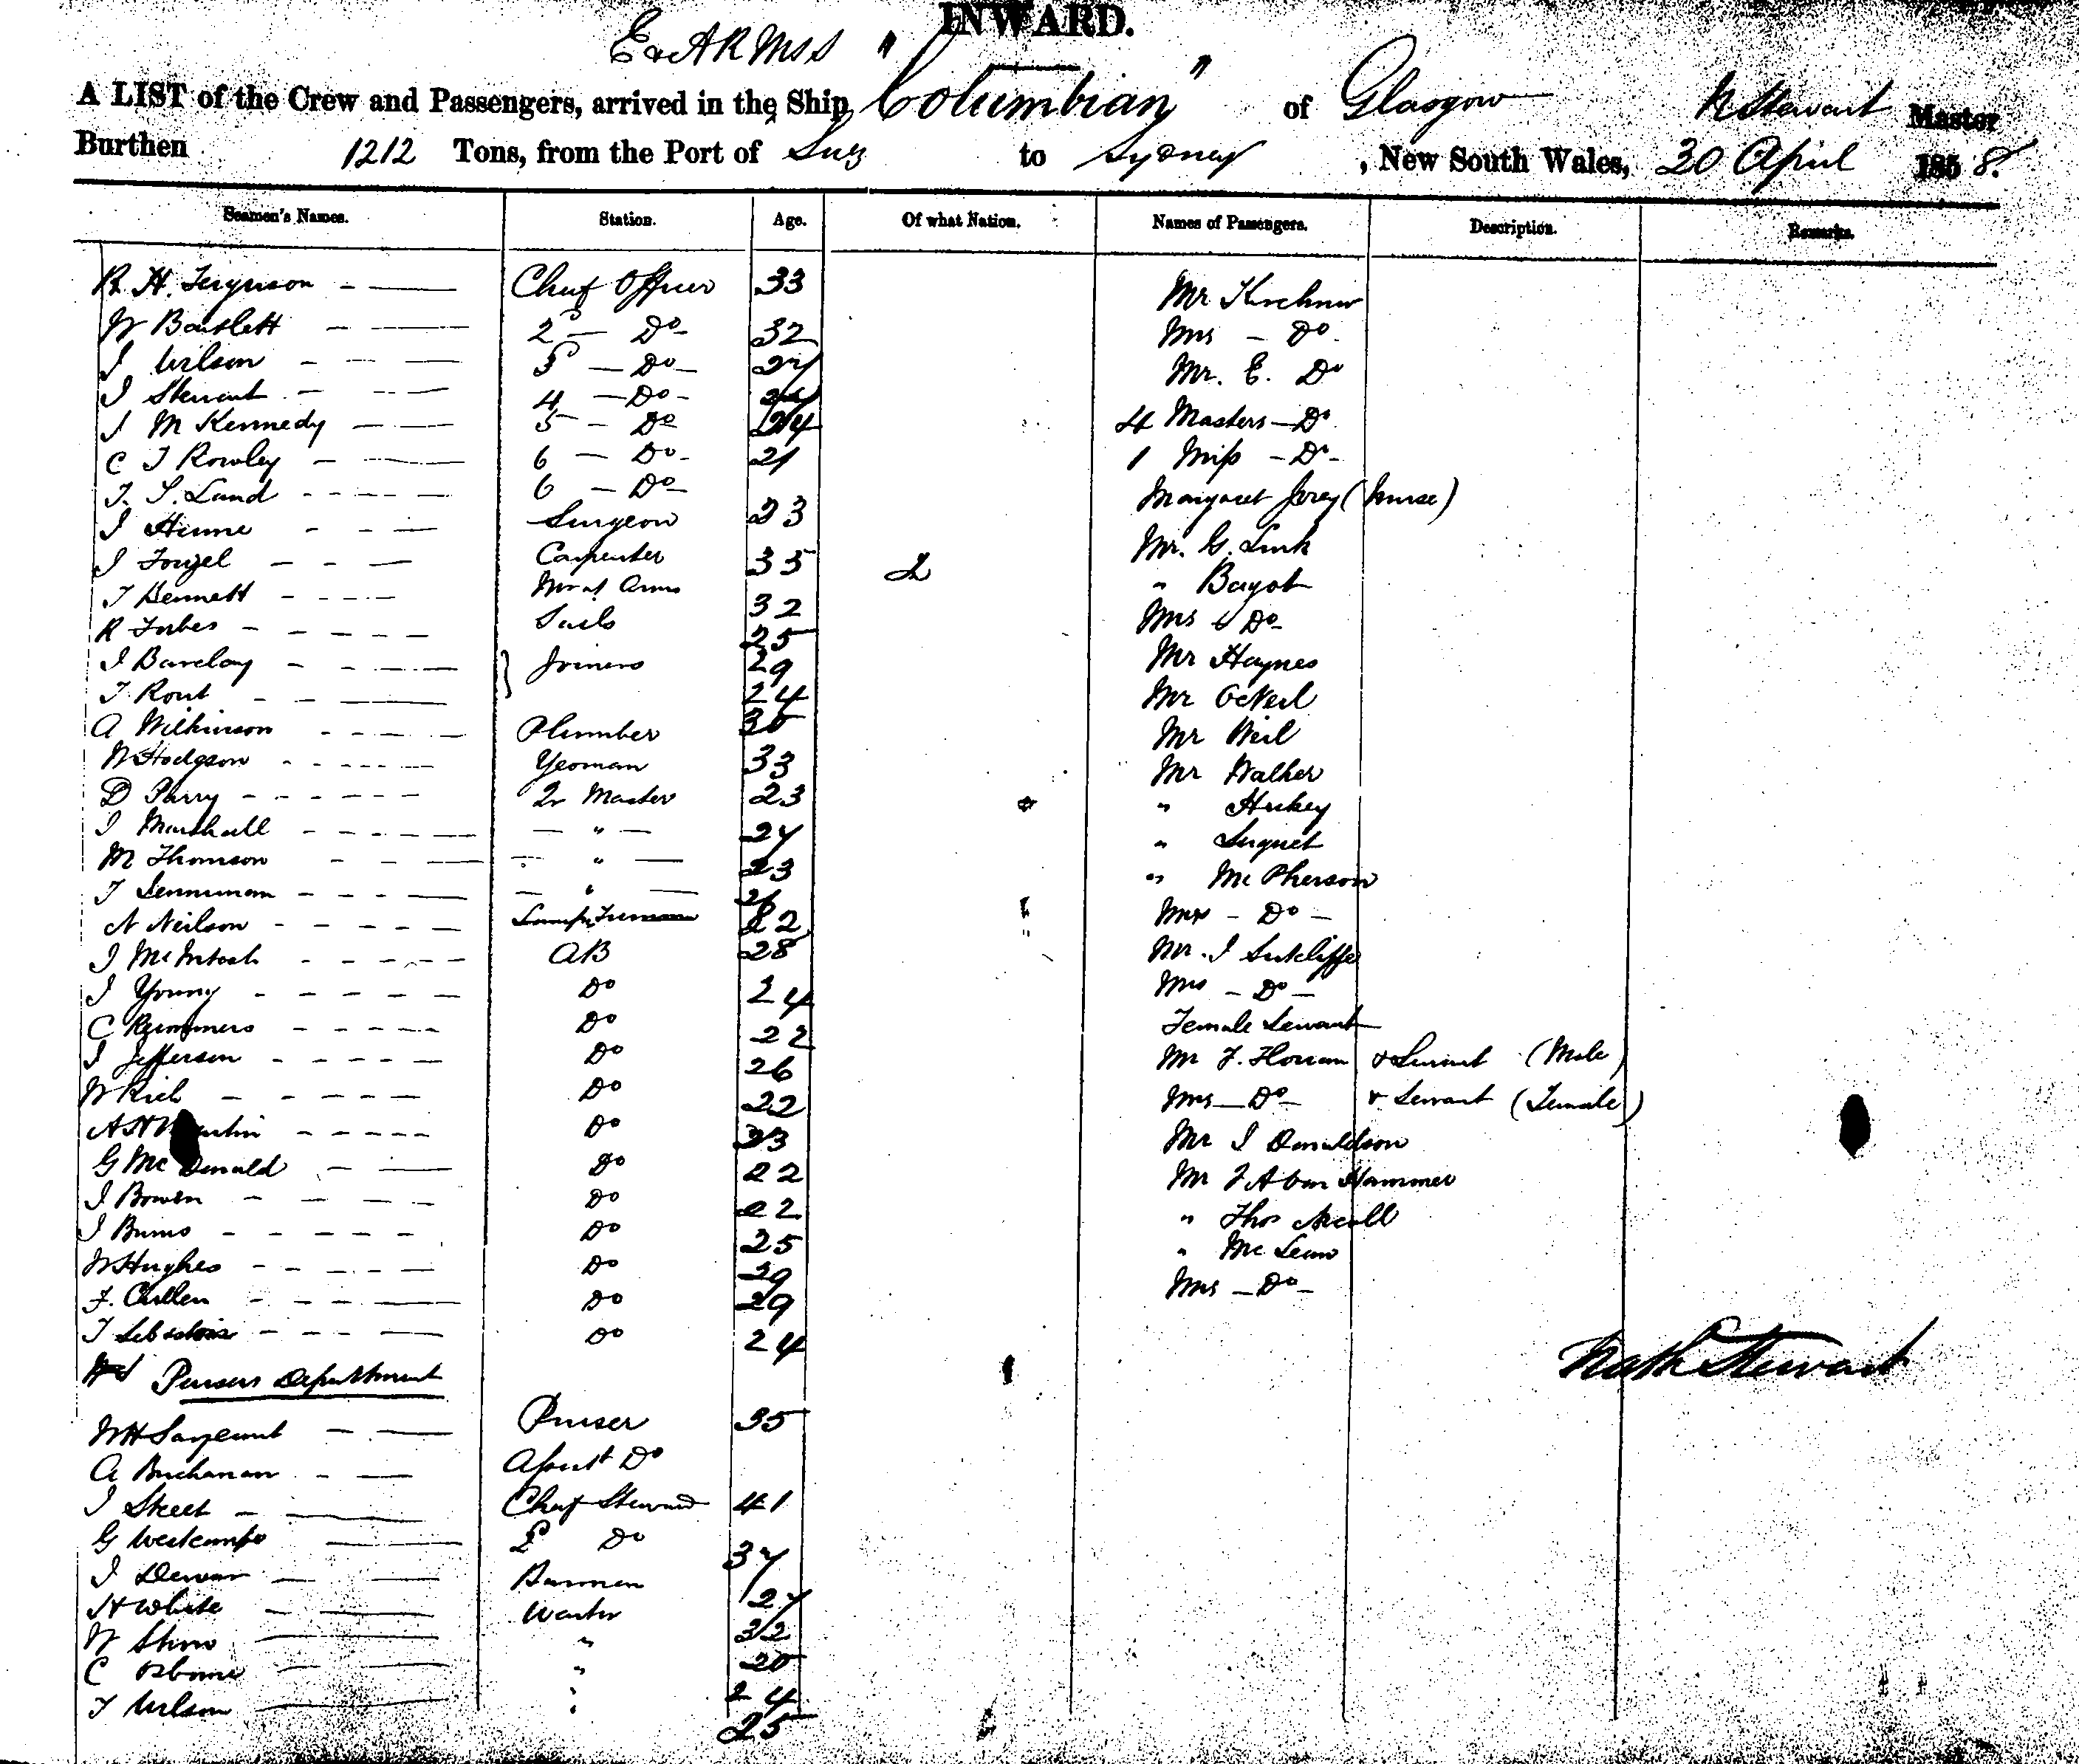 INWARD.
E & A R M S S "Columbian"
A LIST of the Crew and Passengers, arrived in the Ship "Columbian" of Glasgow N Stewart Master
Burthen 1212 Tons, from the Port of Suez to Sydney, New South Wales, 30 April 1858.
Seamen's Names. Station. Age. Of what Nation. Names of Passengers. Description. Remarks.
R. H. Ferguson Chief Officer 33
W Bartlett 2d Do 32
J Wilson 3d Do 27
J Stewart 4 Do
J M Kennedy 5 Do 24
C J Rowley 6 Do 21
T. S. Lund 6 Do
J Hinne Surgeon 23
J Carpenter 35
T Bennett Mr at Arms 32
R Forbes Sails 25
J Barclay Joiners 29
T. Rout 24
A Wilkinson Plumber 30
W Hodgson Yeoman 33
D Parry Qr Master 23
J Marshall " 27
M Thomson " 23
T " 26
N Neilson Lamp Trimmer 22
J McIntosh AB 28
J Young Do 24
C Do 22
J Jefferson Do 26
W Rich Do 22
A H Do 23
G McDonald Do 22
J Bowen Do 22
J Burns Do 25
W Hughes Do 29
F. Cullen Do 29
T Do 24
Pursers Department
W H Sargeant Purser 35
A Buchanan Assist Do
J Street Chief Steward 41
G Westcombe 2d Do 37
J Dewar Barman 27
H White Waiter 32
W " 20
C Osborne " 24
T Wilson " 25
Mr Kirchner
Mrs Do
Mr. E. Do
4 Masters Do
1 Miss Do
Margaret (Nurse)
Mr. G. Link
" Bagot
Mrs Do
Mr Haynes
Mr O'Neil
Mr Weil
Mr Walker
" Hickey
"
" McPherson
Mrs Do
Mr. J Sutcliffe
Mrs Do
Female Servant
Mr F. & Servant (Male)
Mrs Do & Servant (Female)
Mr J Donaldson
Mr J A Van Hammer
" Thos
" McLean
Mrs Do
Nath Stewart